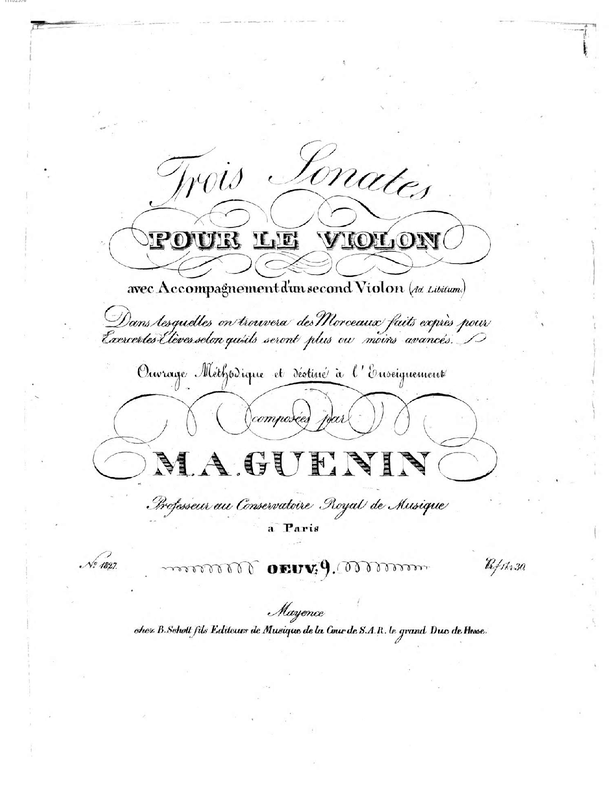 Trois Sonates
POUR LE VIOLON
avec Accompagnement d'un second Violon (Ad Libitum.)
Dans lesquelles on trouvera des Morceaux faits exprès pour
Exercer les Elèves selon qu'ils seront plus ou moins avancés.
Ouvrage Méthodique et déstiné à l'Enseignement
composées par
M.A. GUENIN
Professeur au Conservatoire Royal de Musique
a Paris
No. 1827. OEUV: 9. 30.
Mayence
chez B. Schott fils Editeurs de Musique de la Cour de S.A.R. le grand Duc de Hesse.